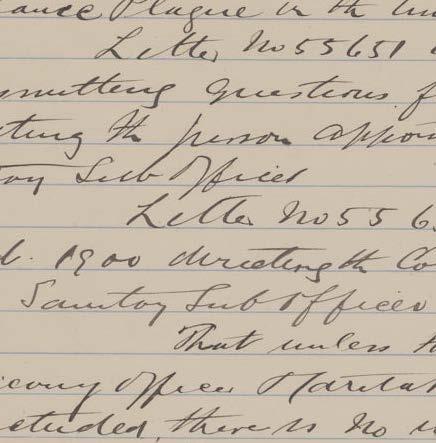 ance Plague in the
Letter No 55651
smitting questions f
ting the person appoin
tory Sub Officer
Letter No 55 65
d. 1900 directing the Co
Sanitary Sub Officer
That unless th
eiving Officer Maritah
cluded, there is no